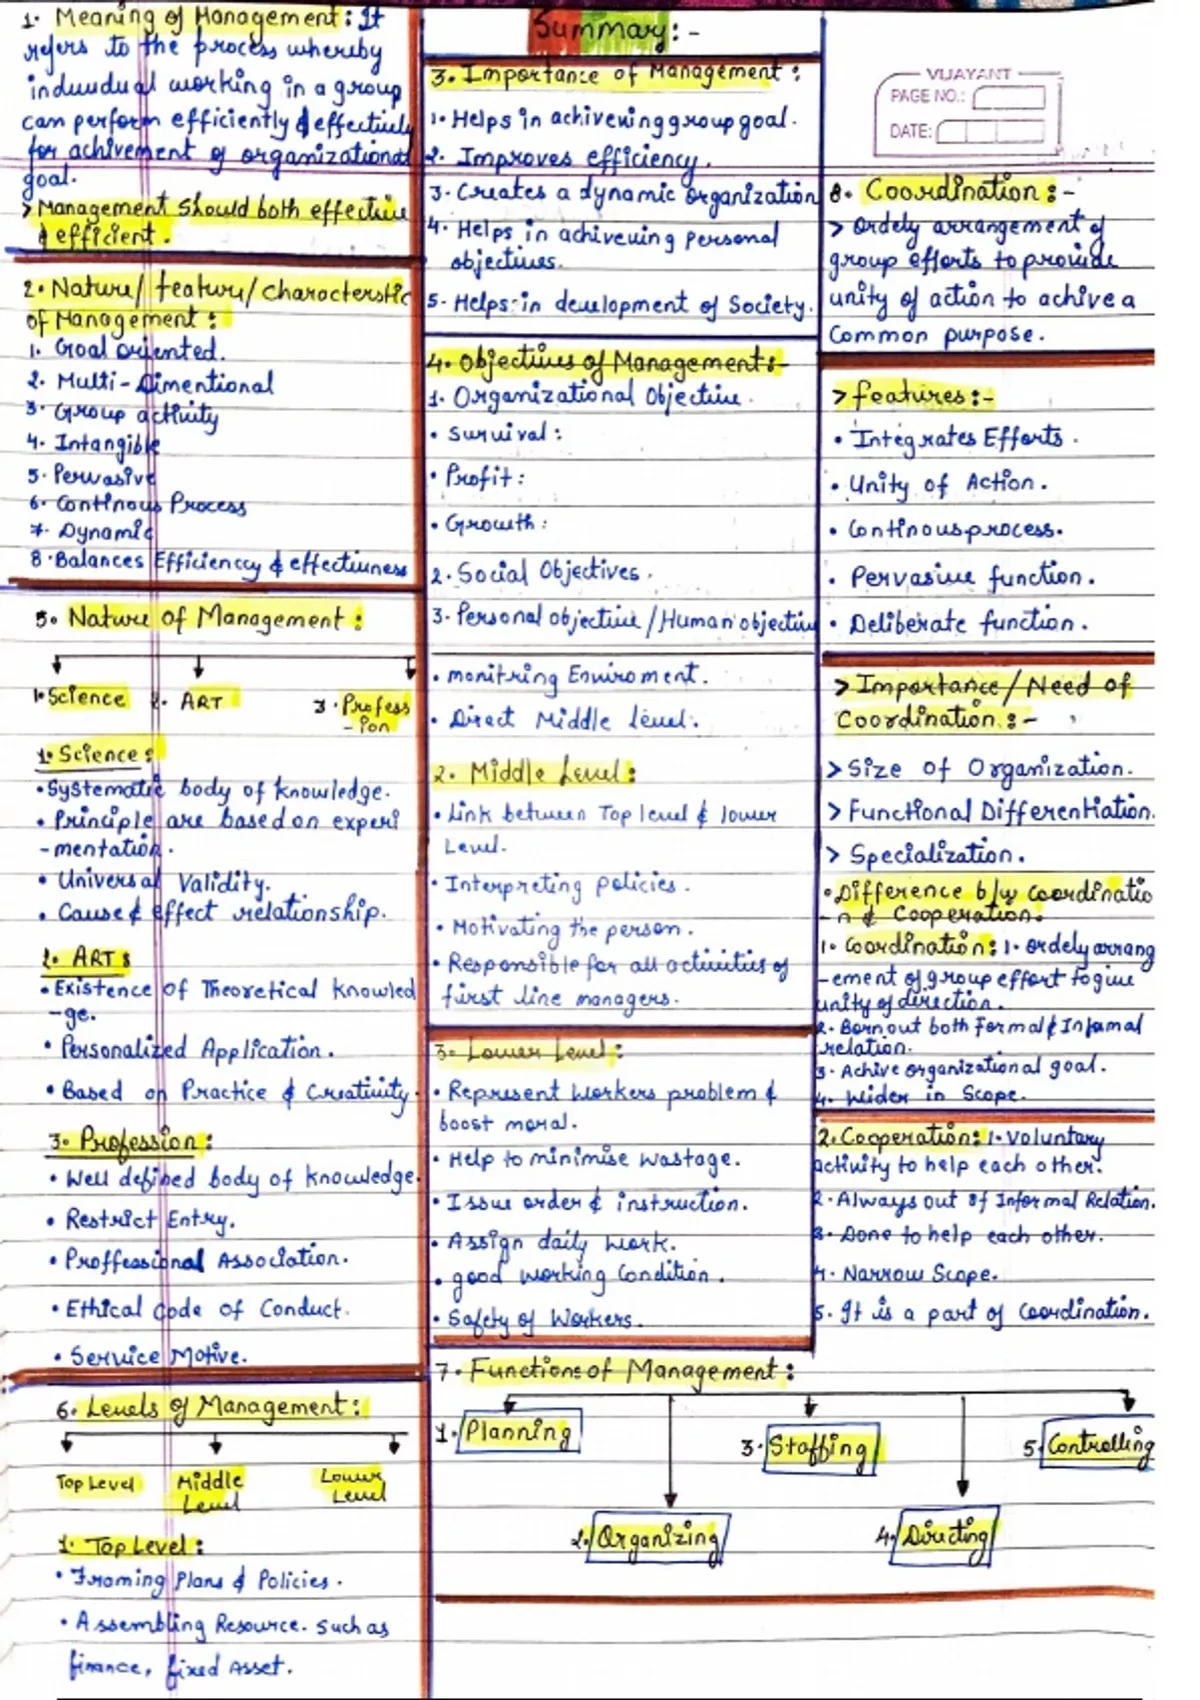 1. Meaning of Management: It
refers to the process whereby
induvdual working in a group
can perform efficiently & effectively
for achivement of organizational
goal.
> Management should both effective
& efficient.
2. Nature/ feature/ characterstic
of Management:
1. Goal oriented.
2. Multi-Dimentional
3. Group activity
4. Intangible
5. Pervasive
6. Continous Process
7. Dynamic
8. Balances Efficiency & effectivness
5. Nature of Management:
1. Science 2. ART 3. Profess
-ion
1. Science:
• Systematic body of knowledge.
• Principle are based on experi
-mentation.
• Universal Validity.
• Cause & effect relationship.
2. ART:
• Existence of Theoretical knowled
-ge.
• Personalized Application.
• Based on Practice & Creativity
3. Profession:
• Well defined body of knowledge.
• Restrict Entry.
• Proffessional Association.
• Ethical code of Conduct.
• Service Motive.
6. Levels of Management:
Top Level Middle Lower
Level Level
1. Top Level:
• Framing Plans & Policies.
• Assembling Resource. Such as
finance, fixed Asset.
Summary:-
3. Importance of Management:
1. Helps in achivening group goal.
2. Improves efficiency.
3. Creates a dynamic organization
4. Helps in achivening personal
objectives.
5. Helps in development of Society.
4. Objectives of Management:-
1. Organizational Objective.
• Survival:
• Profit:
• Growth:
2. Social Objectives.
3. Personal objective / Human objective
• monitring Enviroment.
• Direct Middle level.
2. Middle Level:
• Link between Top level & lower
Level.
• Interpreting policies.
• Motivating the person.
• Responsible for all activities of
first line managers.
3. Lower Level:
• Represent Workers problem &
boost moral.
• Help to minimise wastage.
• Issue order & instruction.
• Assign daily work.
• good working Condition.
• Safety of Workers.
7. Functions of Management:
1. Planning
3. Staffing
5. Controlling
2. Organizing
4. Directing
VIJAYANT
PAGE NO.:
DATE:
8. Coordination:-
> Ordely arrangement of
group efforts to provide
unity of action to achive a
Common purpose.
> features:-
• Integrates Efforts.
• Unity of Action.
• Continous process.
• Pervasive function.
• Deliberate function.
> Importance/Need of
Coordination:-
> Size of Organization.
> Functional Differentiation.
> Specialization.
• Difference b/w coordinatio
-n & Cooperation.
1. Coordination: 1. ordely arrang
-ement of group effort to give
unity of direction.
2. Born out both Formal & Infamal
relation.
3. Achive organizational goal.
4. Wider in Scope.
2. Cooperation: 1. Voluntary
activity to help each other.
2. Always out of Informal Relation.
3. Done to help each other.
4. Narrow Scope.
5. It is a part of Coordination.